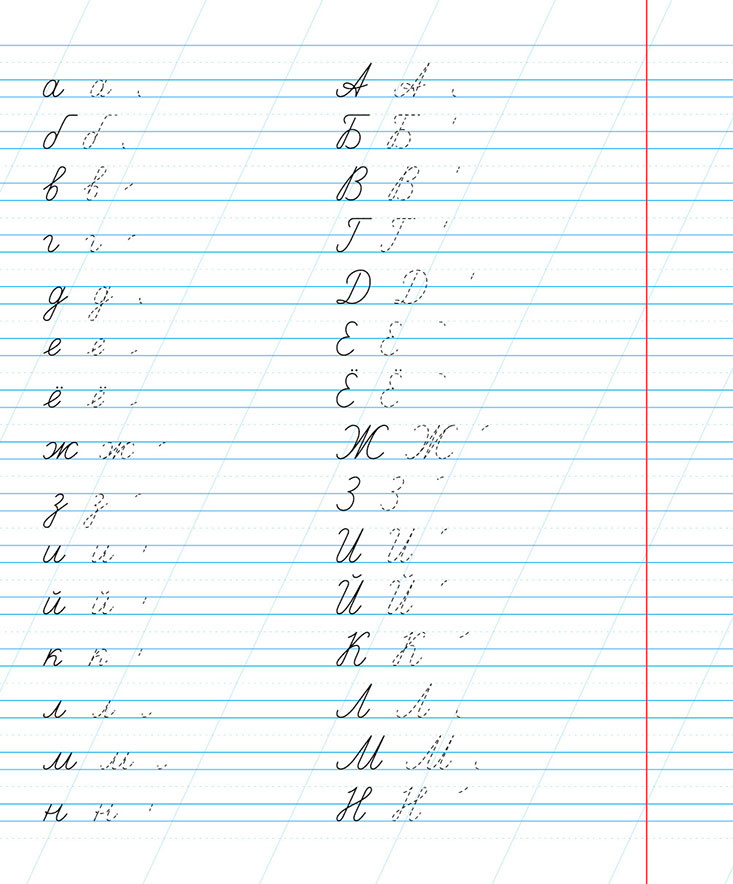 а а А А
б б Б Б
в в В В
г г Г Г
д д Д Д
е е Е Е
ё ё Ё Ё
ж ж Ж Ж
з з З З
и и И И
й й Й Й
к к К К
л л Л Л
м м М М
н н Н Н